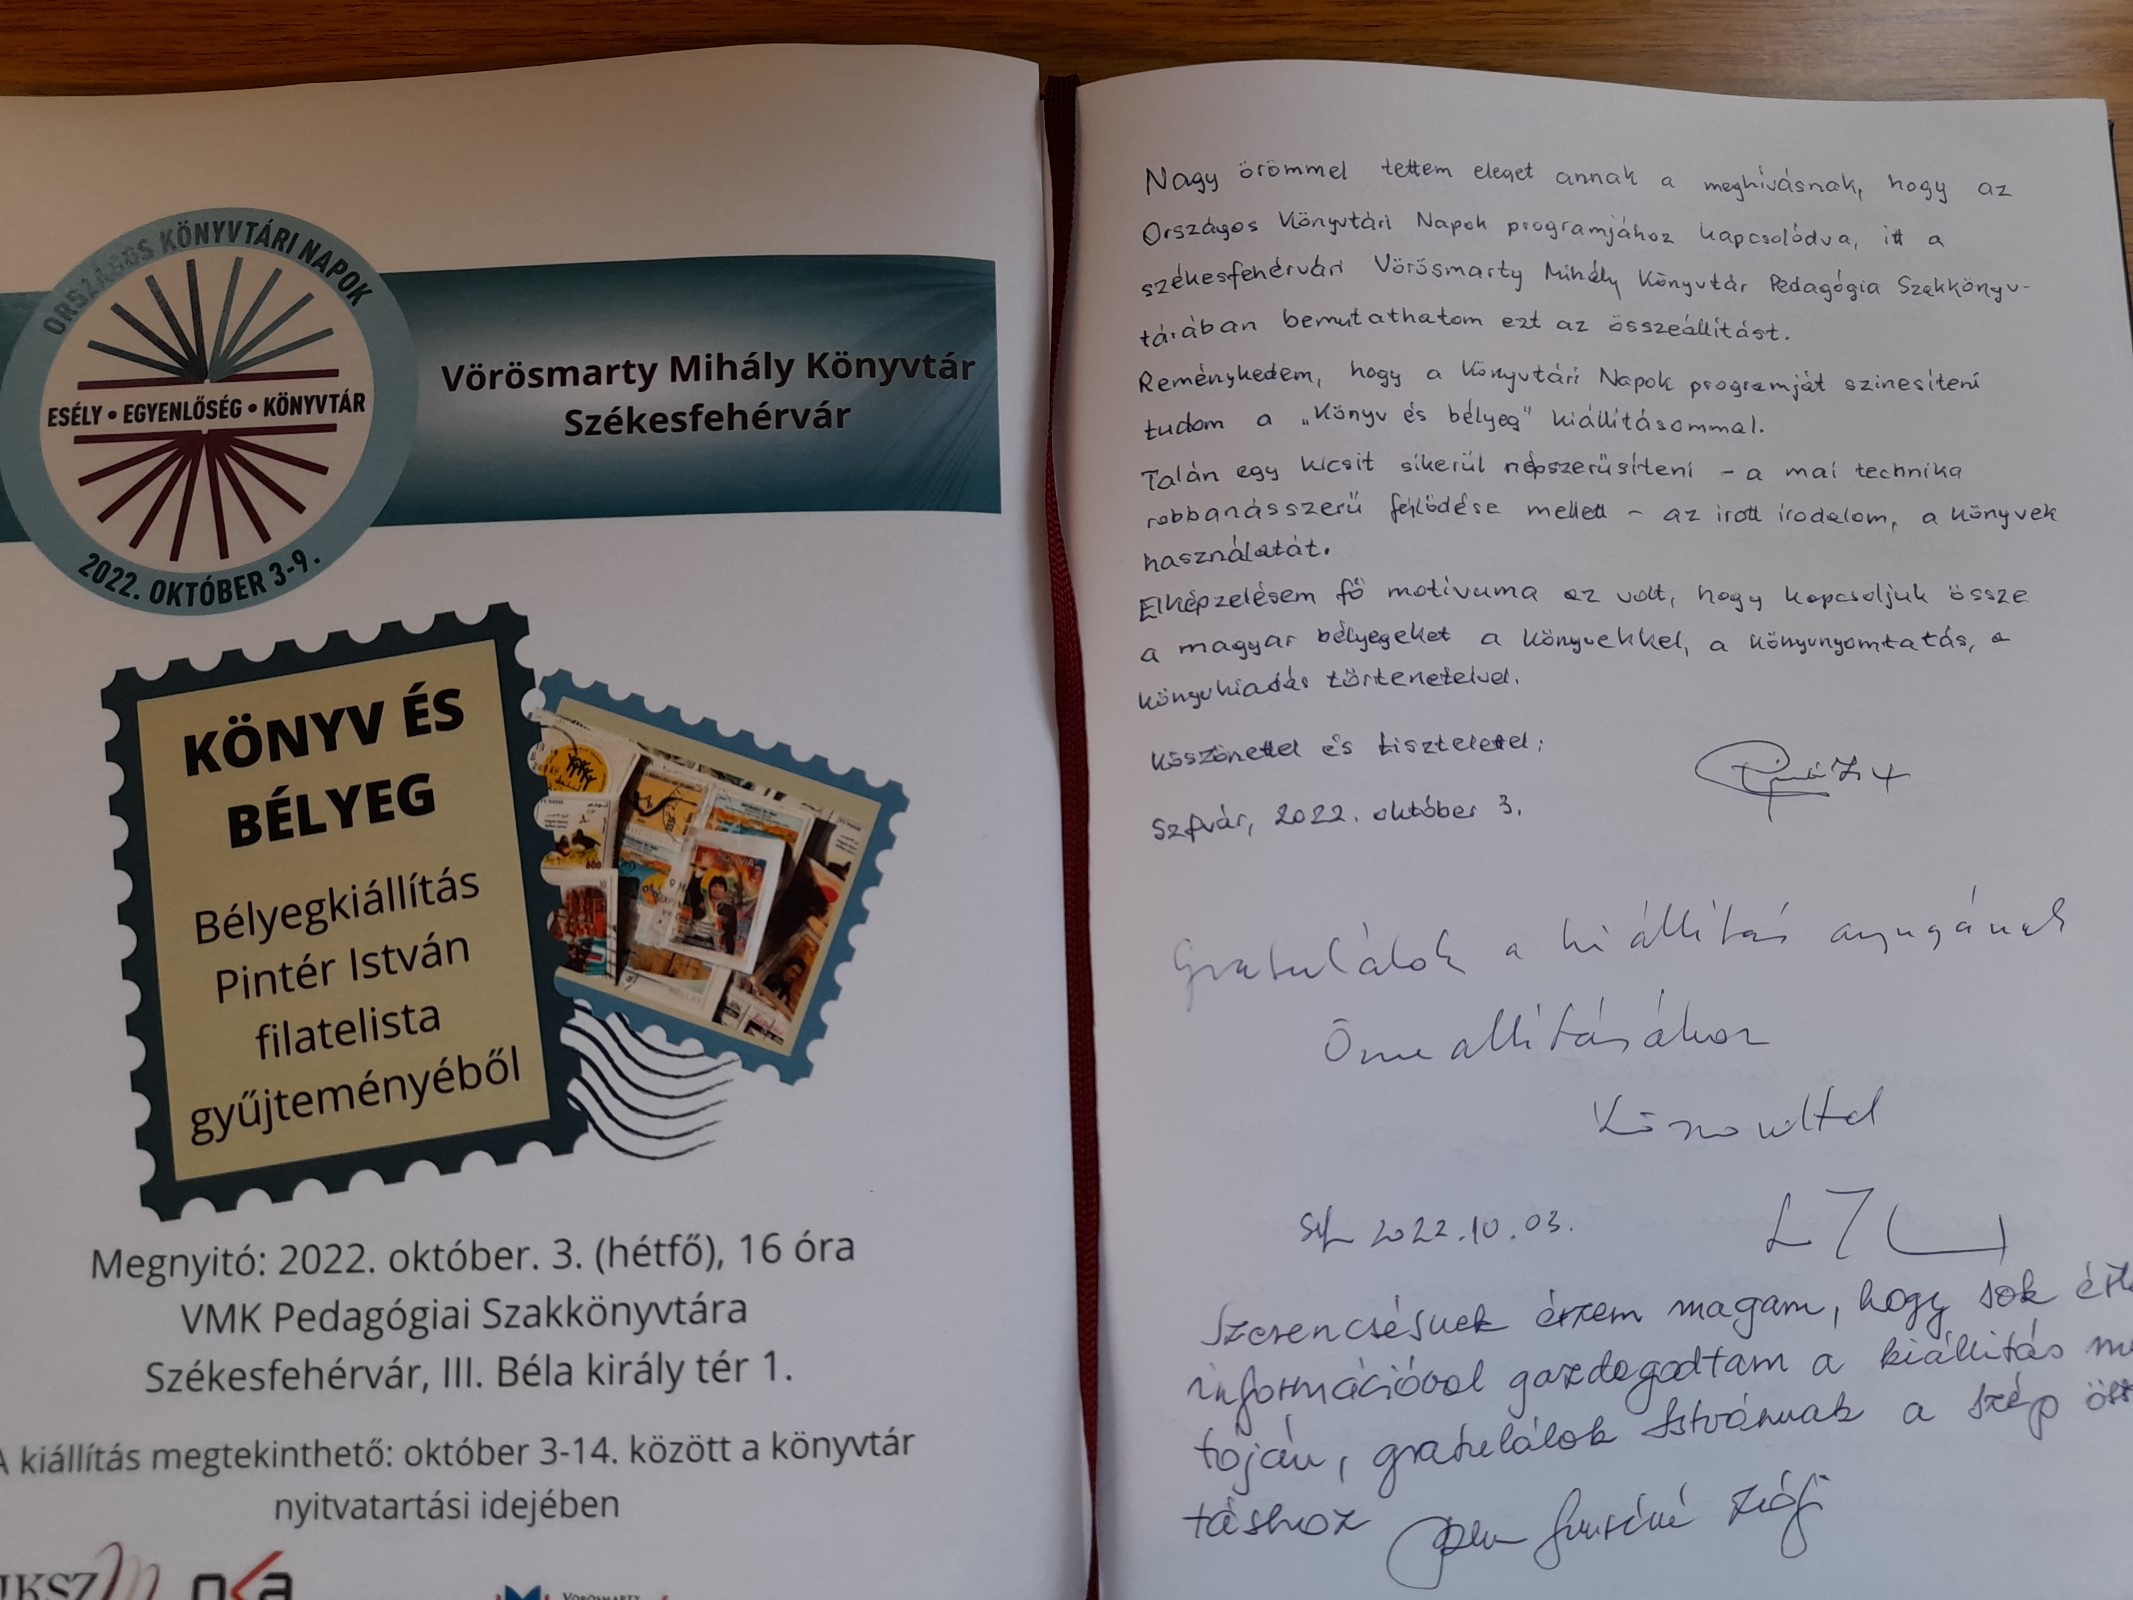 ORSZÁGOS KÖNYVTÁRI NAPOK
ESÉLY • EGYENLŐSÉG • KÖNYVTÁR
2022. OKTÓBER 3-9.
Vörösmarty Mihály Könyvtár
Székesfehérvár
KÖNYV ÉS
BÉLYEG
Bélyegkiállítás
Pintér István
filatelista
gyűjteményéből
Megnyitó: 2022. október. 3. (hétfő), 16 óra
VMK Pedagógiai Szakkönyvtára
Székesfehérvár, III. Béla király tér 1.
A kiállítás megtekinthető: október 3-14. között a könyvtár
nyitvatartási idejében
nka
Nagy örömmel tettem eleget annak a meghívásnak, hogy az
Országos Könyvtári Napok programjához kapcsolódva, itt a
székesfehérvári Vörösmarty Mihály Könyvtár Pedagógia Szakkönyv-
tárában bemutathatom ezt az összeállítást.
Reménykedem, hogy a Könyvtári Napok programját szinesíteni
tudom a „Könyv és bélyeg" kiállításommal.
Talán egy kicsit sikerül népszerűsíteni – a mai technika
robbanásszerű fejlődése mellett – az irott irodalom, a könyvek
használatát.
Elképzelésem fő motívuma az volt, hogy kapcsoljuk össze
a magyar bélyegeket a könyvekkel, a könyvnyomtatás, a
könyvkiadás történetével.
Köszönettel és tisztelettel;
Szfvár, 2022. október 3.
Gratulálok a kiállítás anyagának
Összeállításához
Köszönettel
Szf. 2022.10.03.
Szerencsésnek érzem magam, hogy sok
információval gazdagodtam a kiállítás
toján, gratulálok Istvánnak a szép
táshoz